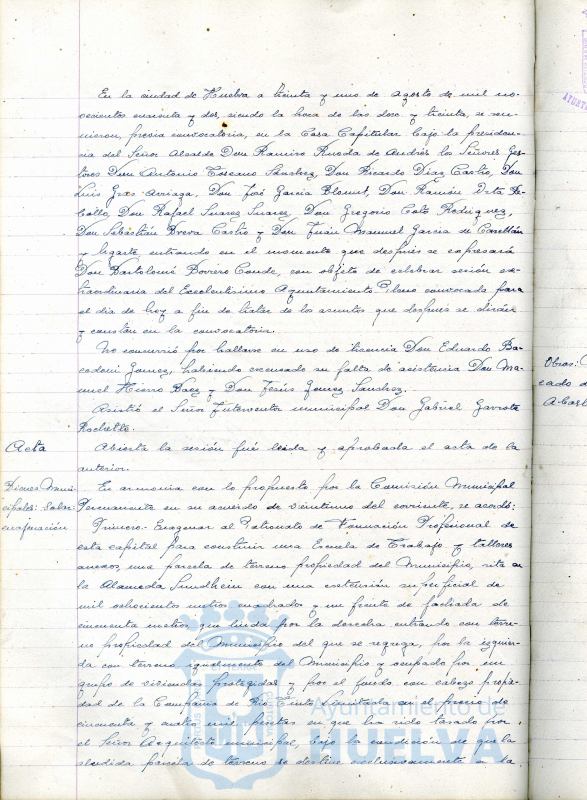 En la ciudad de Huelva a treinta y uno de agosto de mil no-
vecientos cuarenta y dos, siendo la hora de las doce y treinta, se reu-
nieron, previa convocatoria, en la Casa Capitular bajo la presiden-
cia del Señor Alcalde Don Ramiro Rueda de Andrés los Señores Ges-
tores Don Antonio Toscano Sánchez, Don Ricardo Díaz Castro, Don
Luis Gras Arriaga, Don José García Don Ramón Re-
bollo, Don Rafael Suarez Suarez, Don Gregorio Coto Rodríguez,
Don Sebastián Castro y Don Juan Manuel García de
y Ugarte entrando en el momento que después se expresará
Don Bartolomé Borrero Conde, con objeto de celebrar sesión ex-
traordinaria del Excelentísimo Ayuntamiento Pleno convocada para
el día de hoy a fin de tratar de los asuntos que despues se dirán
y constan en la convocatoria.
No concurrió por hallarse en uso de licencia Don Eduardo
Gomez, habiendo excusado su falta de asistencia Don Ma-
nuel Hierro Baez y Don Jesús Gomez Sanchez.
Asistió el Señor Interventor municipal Don Gabriel Garrote
Acta
Abierta la sesión fué leída y aprobada el acta de la
anterior.
Bienes Muni-
cipales: Solar:
enagenación
En armonía con lo propuesto por la Comisión Municipal
Permanente en su acuerdo de veintiuno del corriente, se acordó:
Primero.- Enagenar al Patronato de Formación Profesional de
esta capital para construir una Escuela de Trabajo y talleres
anexos, una parcela de terreno propiedad del Municipio, sita en
la Alameda Sundheim con una extensión superficial de
mil ochocientos metros cuadrados y un frente de fachada de
cincuenta metros, que linda por la derecha entrando con terre-
no propiedad del Municipio del que se segrega, por la izquier-
da con terreno igualmente del Municipio y ocupado por un
grupo de viviendas protegidas y por el fondo con cabezo propie-
dad de la Compañía de Rio Tinto Limitada en el precio de
cincuenta y cuatro mil pesetas en que ha sido tasado por
el Señor Arquitecto municipal, bajo la condición de que la
aludida parcela de terreno se destine exclusivamente a la
Obras:
cado d
Abast
Ayuntamiento de
HUELVA